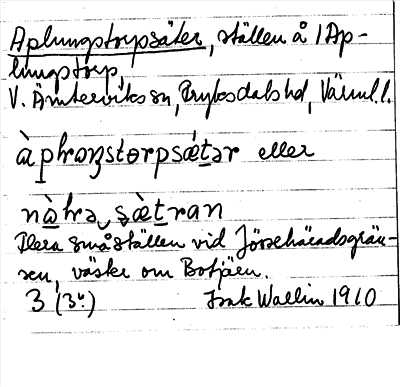 Aplungstorpsäter, ställen å 1 Ap-
lungstorp,
V. Ämterviks sn, Fryksdals hd, Värml. l.
àpluŋstorpsǽtər eller
nàhrə sæ̀tran
Flera småställen vid Jössehäradsgrän-
sen, väster om Botjärn.
3 (3⁴.) Isak Wallin 1910